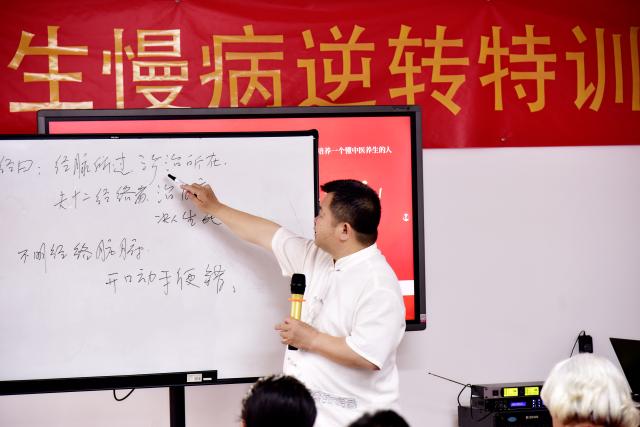 生慢病逆转特训
培养一个懂中医养生的人
经曰：经脉所过 诊治所在.
夫十二经络者 治
决人生死
不明经络脏腑
开口动手便错。